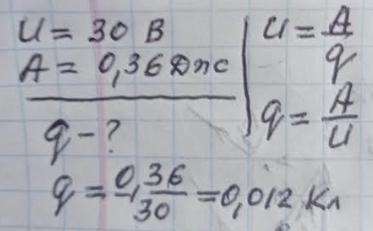 U = 30 В
A = 0,36 Дж
q - ?
U = A/q
q = A/U
q = 0,36/30 = 0,012 Кл